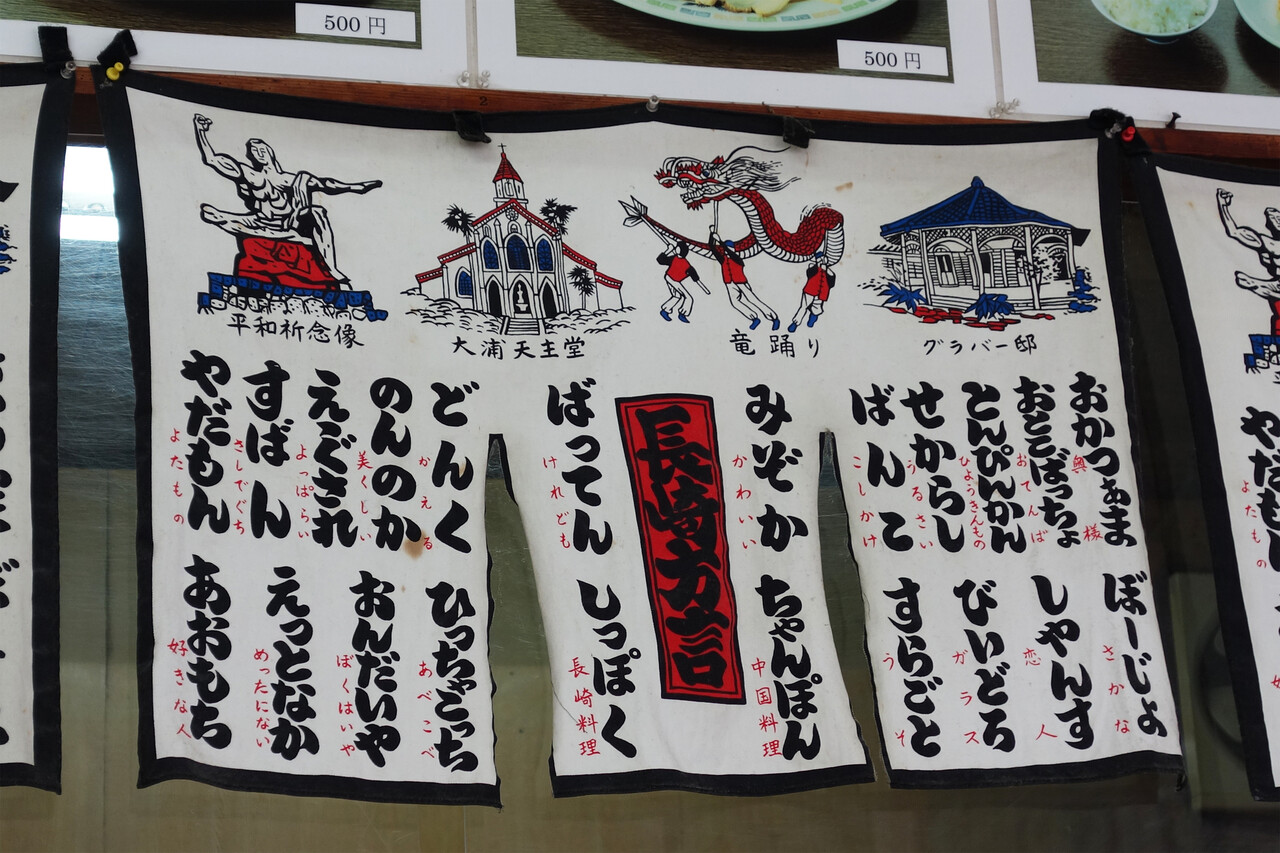 500円
500円
平和祈念像
大浦天主堂
竜踊り
グラバー邸
長崎方言
おかつぁま
奥様
おとこばっちょ
おてんば
とんぴんかん
ひょうきんもの
せからし
うるさい
ばんこ
こしかけ
ぼーじょ
さかな
しゃんす
恋人
びいどろ
ガラス
すらごと
うそ
みぞか
かわいい
ちゃんぽん
中国料理
ばってん
けれども
しっぽく
長崎料理
どんく
かえる
のんのか
美くしい
えぐされ
よっぱらい
すばん
さしでぐち
やだもん
よたもの
ひっちゃごっち
あべこべ
おんだいや
ぼくはいや
えっとなか
めったにない
あおもち
好きな人
やだもん
よたもの